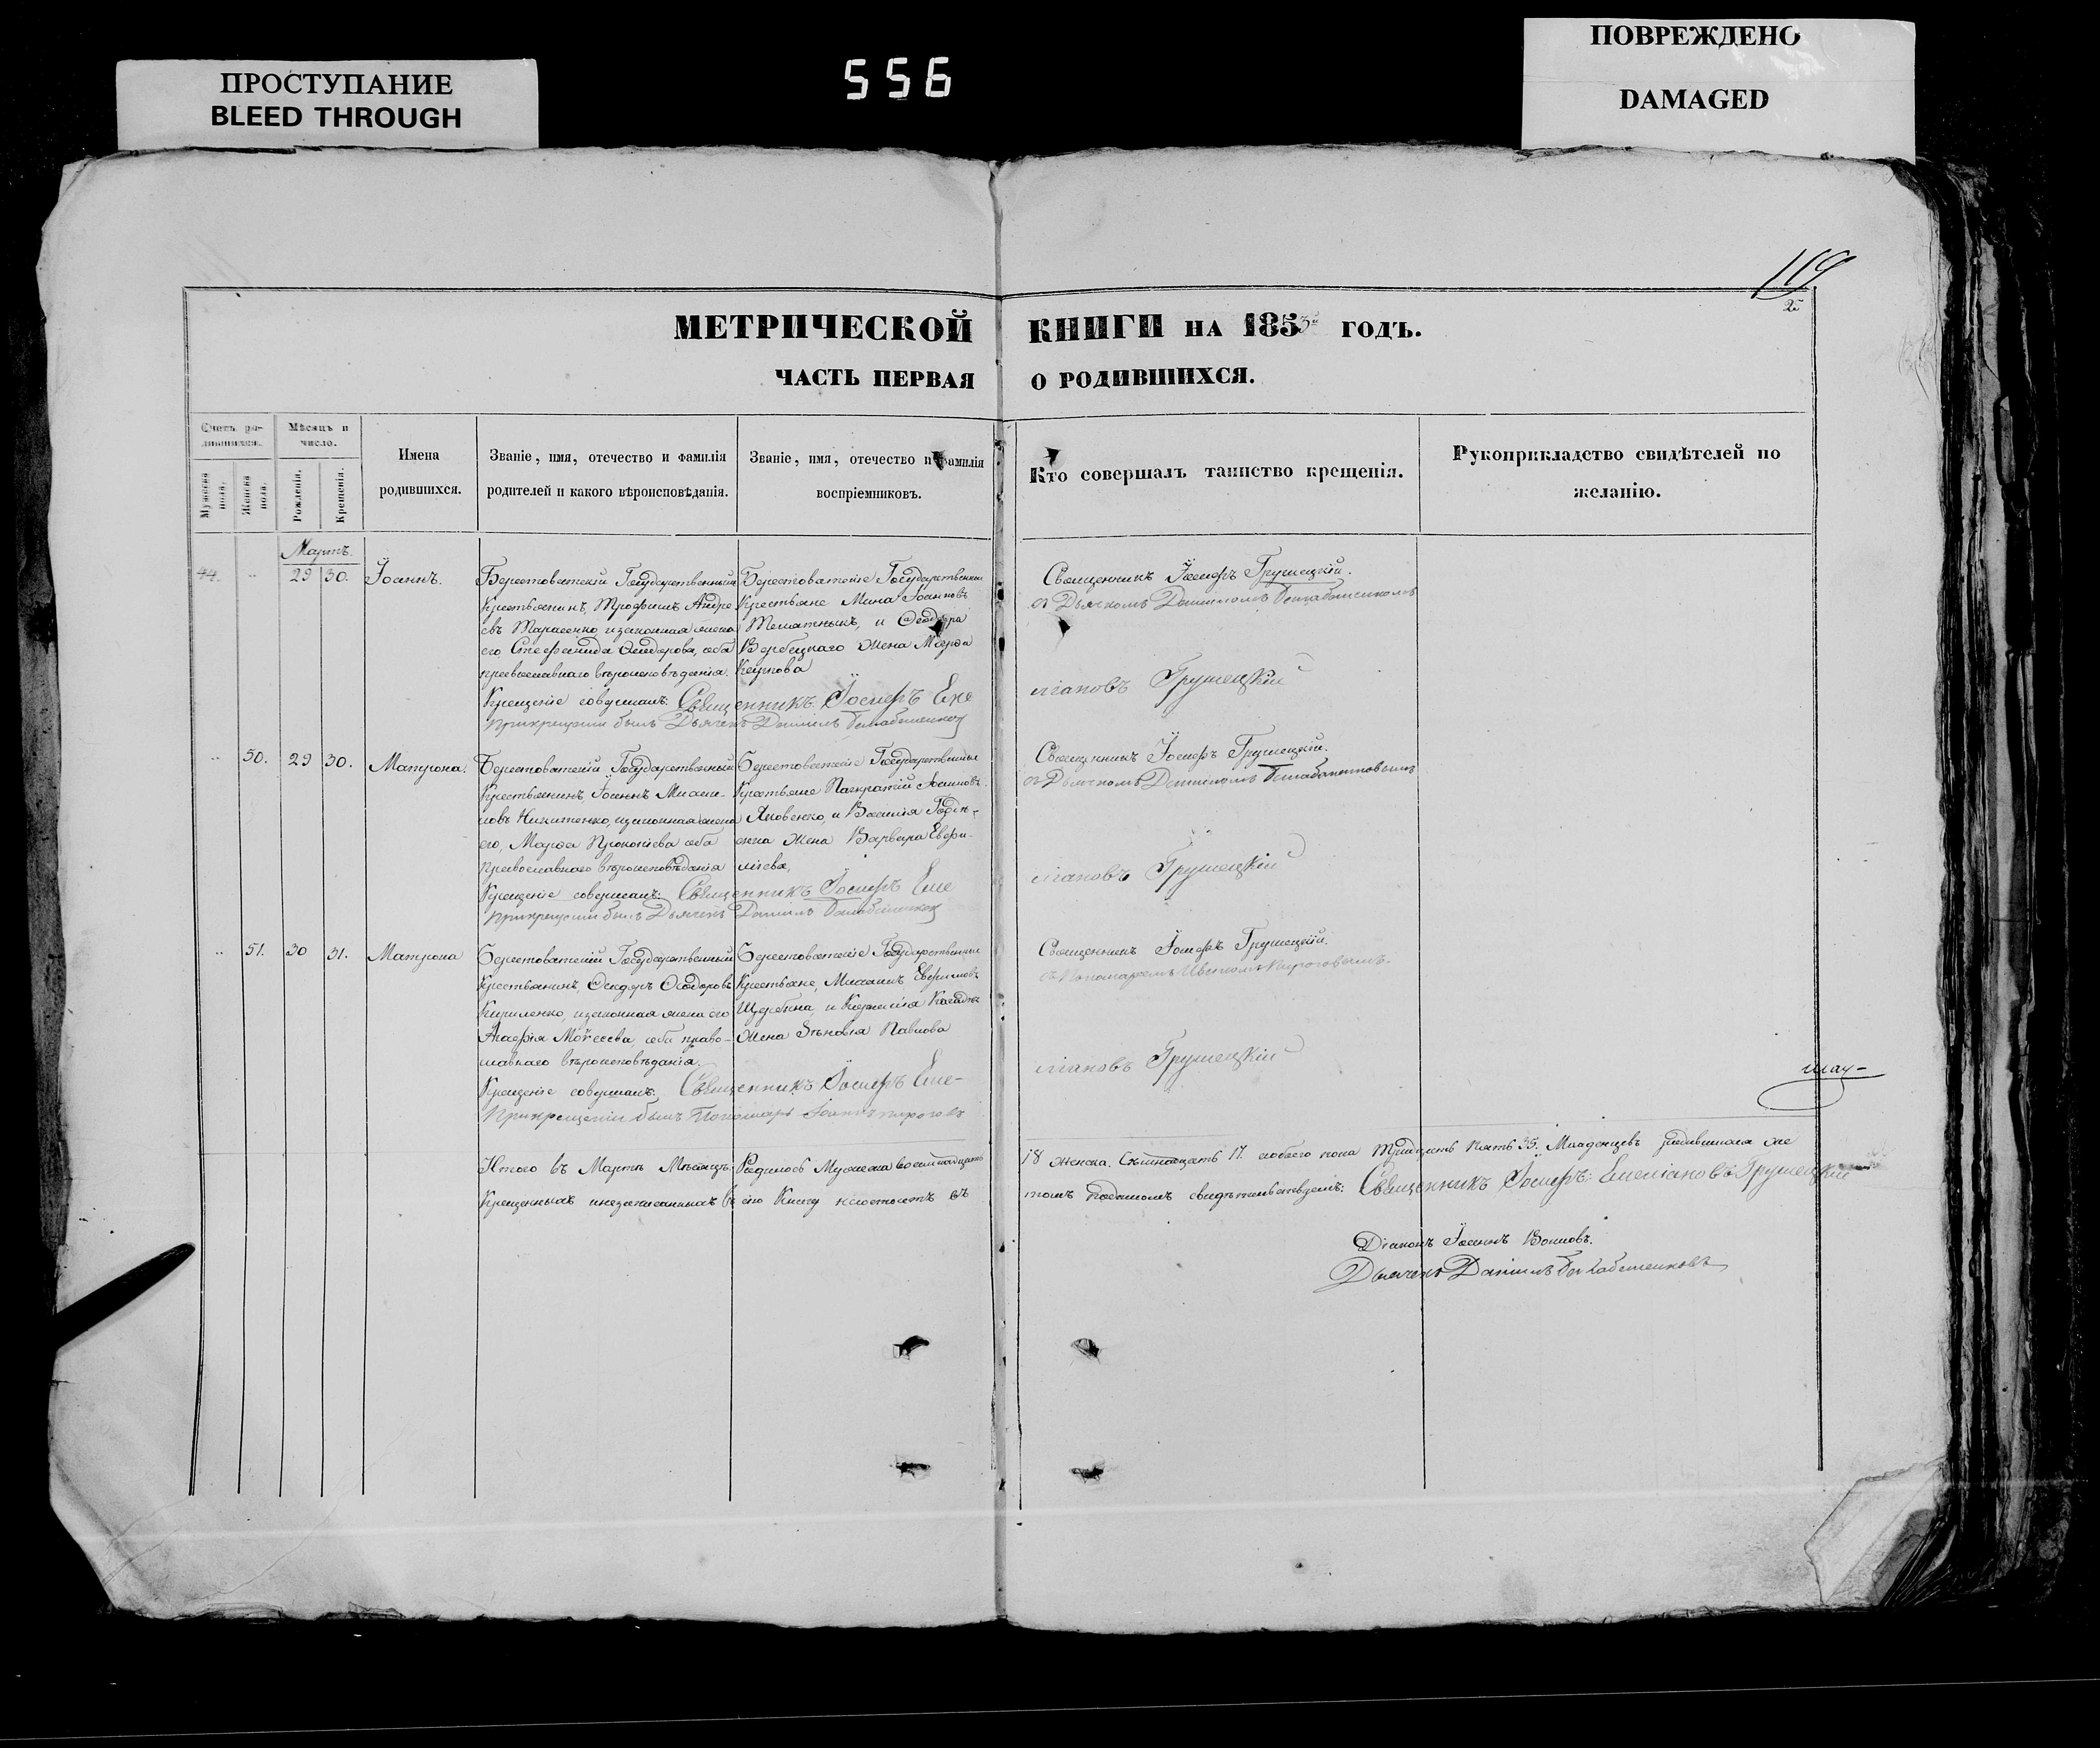 ПРОСТУПАНИЕ
BLEED THROUGH
556
ПОВРЕЖДЕНО
DAMAGED
119
МЕТРИЧЕСКОЙ КНИГИ НА 1853 ГОДЪ.
ЧАСТЬ ПЕРВАЯ О РОДИВШИХСЯ.
Счетъ ро-
дившихся.
Мужеска пола.
Женска пола.
Мѣсяцъ и
число.
Рожденія.
Крещенія.
Имена
родившихся.
Званіе, имя, отечество и фамилія
родителей и какого вѣроисповѣданія.
Званіе, имя, отечество и фамилія
воспріемниковъ.
Кто совершалъ таинство крещенія.
Рукоприкладство свидѣтелей по
желанію.
Мартъ.
44.
29
30.
Іоаннъ.
Берестоватскій Государственный
Крестьянинъ, Трофимъ Андре
евъ Тарасенко, и законная жена
его Стефанида Ѳеодорова, оба
православнаго вѣроисповѣданія.
Берестоватскіе Государственные
Крестьяне Мина Іоанновъ
и Ѳеодора
Вербецкаго жена Марфа
Карпова
Священникъ Іосифъ Грушецкій.
съ Дьячкомъ Даніиломъ
Крещеніе совершалъ: Священникъ Іосифъ Еме
ліановъ Грушецкій
При крещеніи былъ Дьячекъ Даніилъ
50.
29
30.
Матрона.
Берестоватскій Государственный
Крестьянинъ, Іоаннъ Михаи-
ловъ Никитенко, и законная жена
его, Марфа Прокопіева оба
Православнаго вѣроисповѣданія
Берестоватскіе Государственные
Крестьяне Панкратій Іоанновъ
Яковенко, и Василія
жена Варвара Евфи-
міева,
Священникъ Іосифъ Грушецкій.
съ Дьячкомъ Даніиломъ
Крещеніе совершалъ: Священникъ Іосифъ Еме
ліановъ Грушецкій
При крещеніи былъ Дьячекъ Даніилъ
51.
30
31.
Матрона
Берестоватскій Государственный
Крестьянинъ, Ѳеодоръ Ѳеодоровъ
Кириленко, и законная жена его
Агафія Моѵсеева, оба право-
славнаго вѣроисповѣданія.
Берестоватскіе Государственные
Крестьяне, Михаилъ Евфимовъ
Щербина, и
Жена Зѣновія Павлова
Священникъ Іосифъ Грушецкій.
съ Пономаремъ
Крещеніе совершалъ: Священникъ Іосифъ Еме-
ліановъ Грушецкій
При крещеніи былъ Пономарь Іоаннъ
Итого въ Мартѣ Мѣсяцѣ: Родилось Мужеска восемнадцать
18 Женска. Семнадцать 17. обоего пола Тридцать Пять 35. Младенцевъ родившихся не
Крещенныхъ и незаписанныхъ въ сію Книгу не состоитъ въ
томъ подписомъ свидѣтельствуемъ: Священникъ Іосифъ: Емеліановъ Грушецкій
Діаконъ Іоаннъ
Дьячекъ Даніилъ